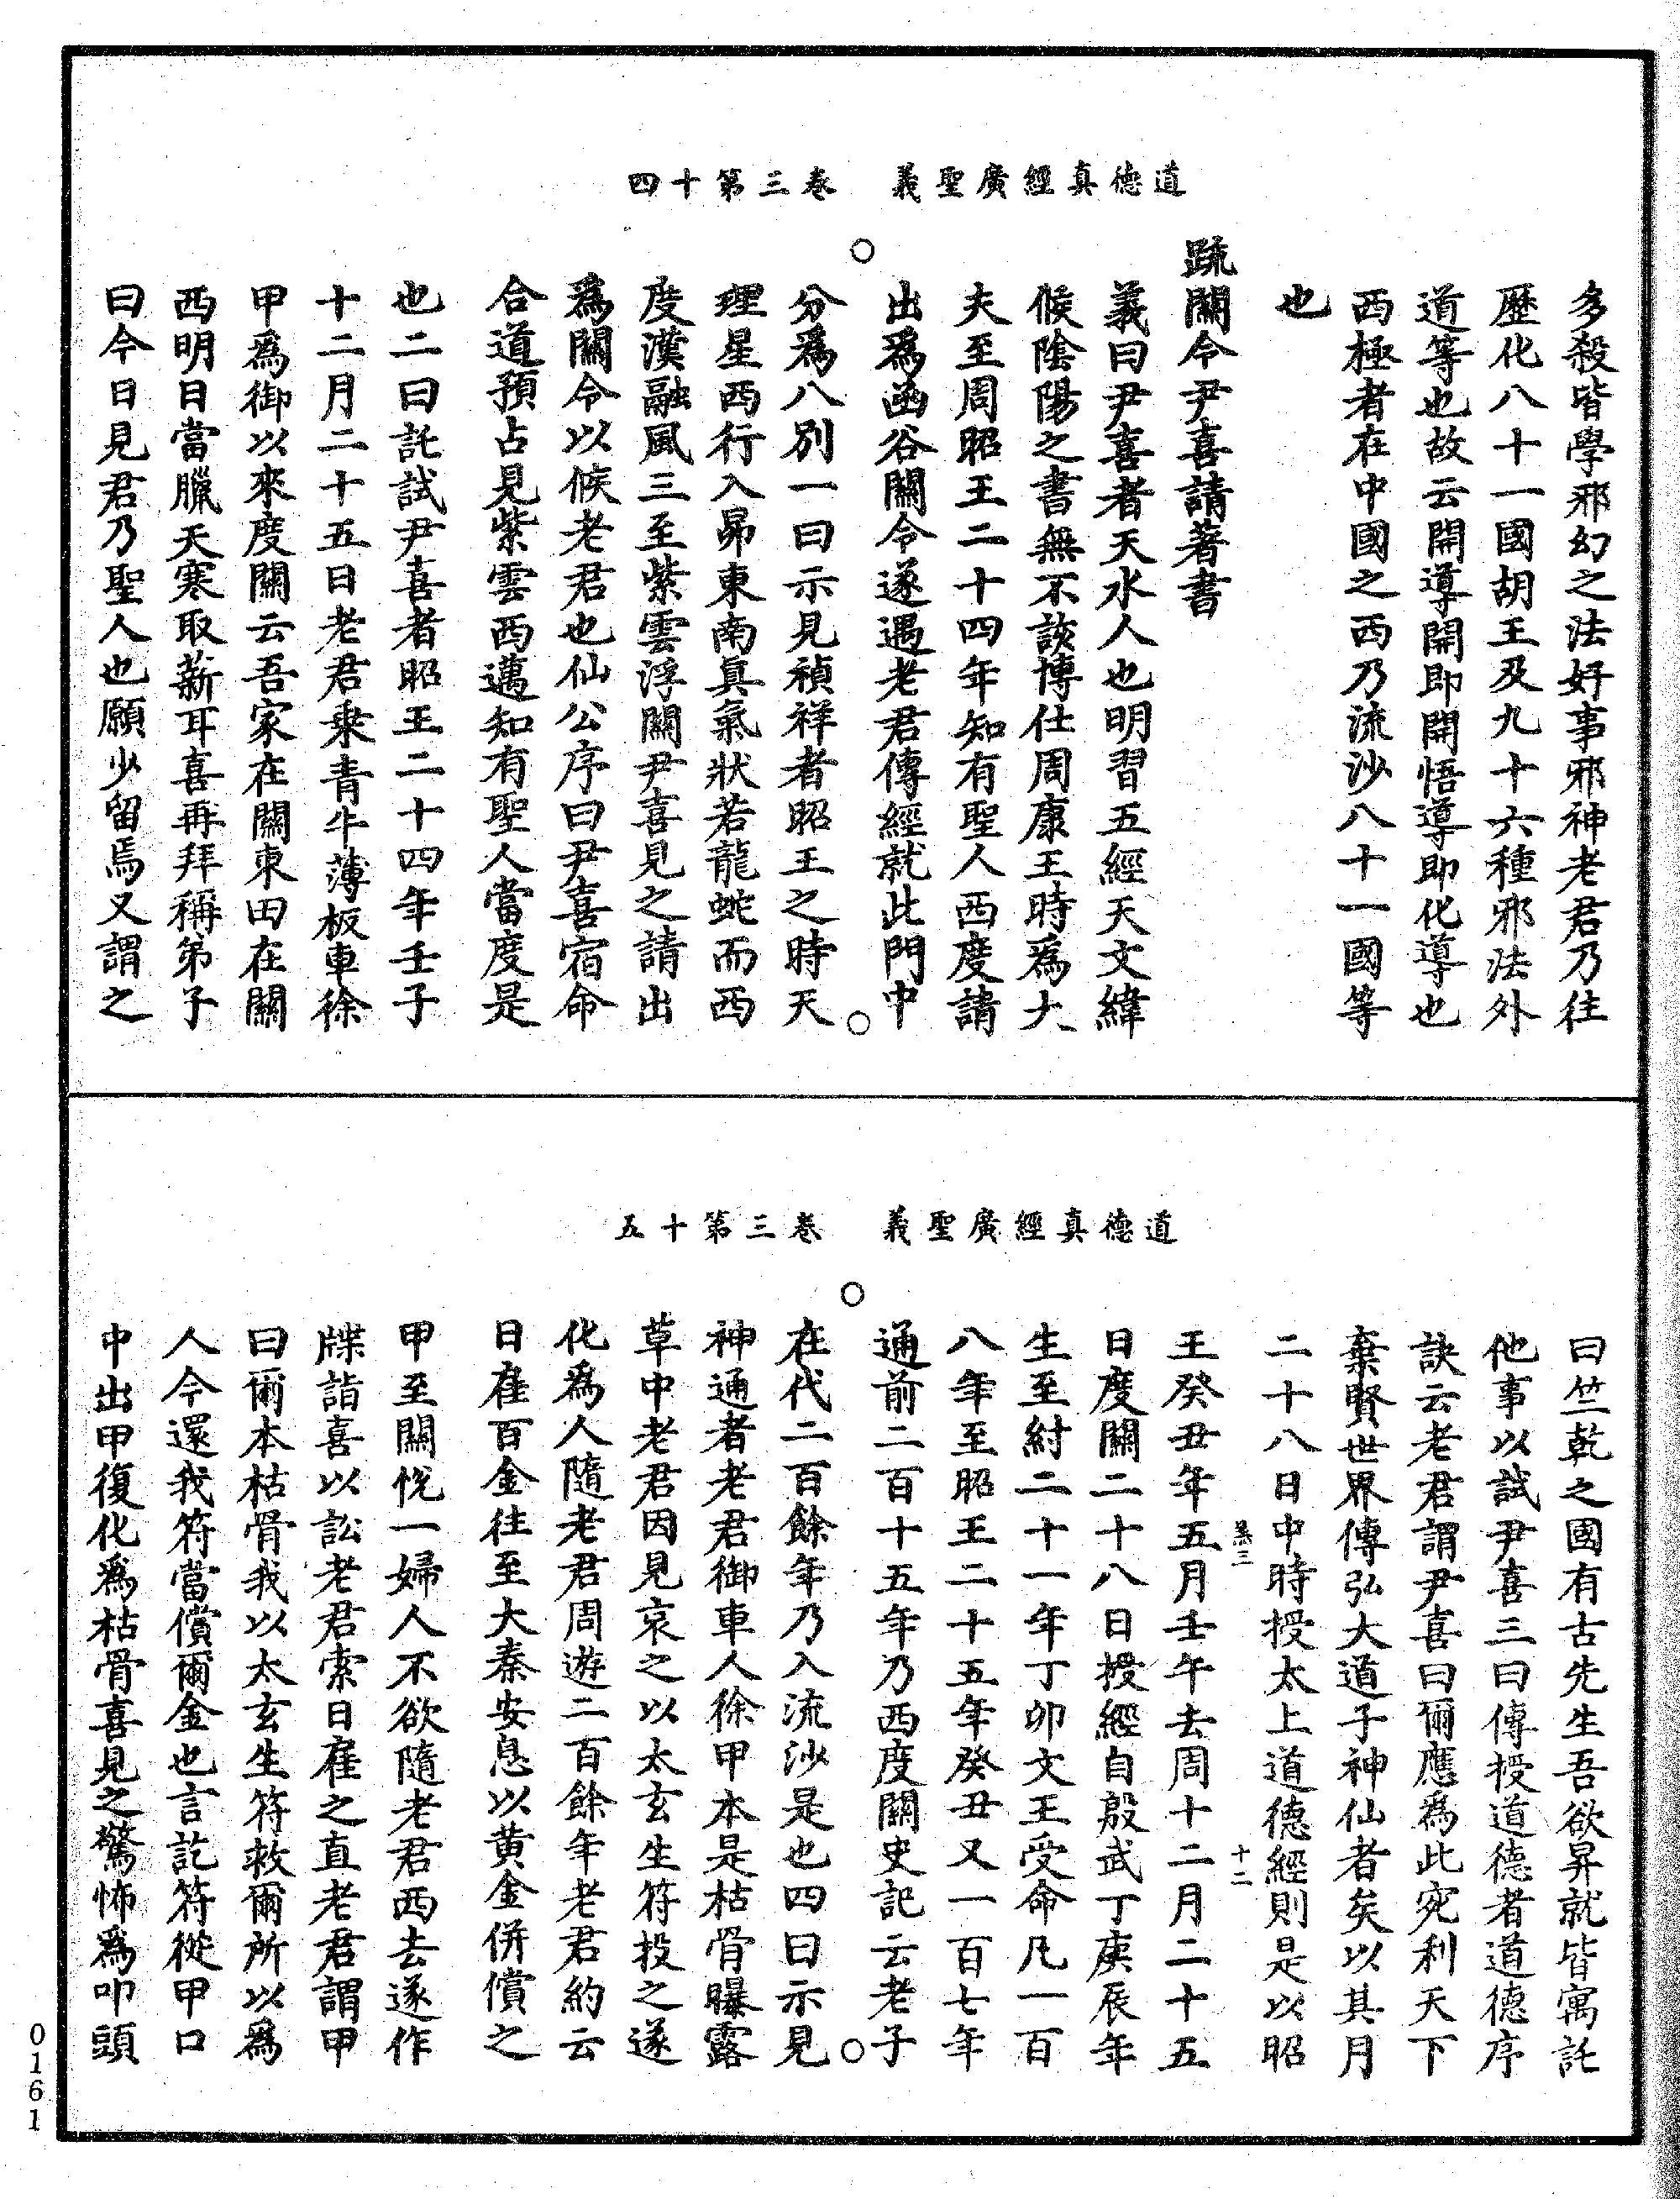 道德真經廣聖義　卷三第十四
多殺皆學邪幻之法好事邪神老君乃往
歷化八十一國胡王及九十六種邪法外
道等也故云開導開即開悟導即化導也
西極者在中國之西乃流沙八十一國等
也
䟽關令尹喜請著書
義曰尹喜者天水人也明習五經天文緯
候陰陽之書無不該博仕周康王時爲大
夫至周昭王二十四年知有聖人西度請
出爲函谷關令遂遇老君傳經就此門中
分爲八別一曰示見禎祥者昭王之時天
理星西行入昴東南真氣狀若龍蛇而西
度漢融風三至紫雲浮關尹喜見之請出
爲關令以候老君也仙公序曰尹喜宿命
合道預占見紫雲西邁知有聖人當度是
也二曰託試尹喜者昭王二十四年壬子
十二月二十五日老君乘青牛薄板車徐
甲爲御以來度關云吾家在關東田在關
西明日當臘天寒取薪耳喜再拜稱弟子
曰今日見君乃聖人也願少留焉又謂之
道德真經廣聖義　卷三第十五
曰竺乾之國有古先生吾欲昇就皆寓託
他事以試尹喜三曰傳授道德者道德序
訣云老君謂尹喜曰爾應爲此宛利天下
棄賢世界傳弘大道子神仙者矣以其月
二十八日中時授太上道德經則是以昭
慕三　十二
王癸丑年五月壬午去周十二月二十五
日度關二十八日授經自殷武丁庚辰年
生至紂二十一年丁卯文王受命凡一百
八年至昭王二十五年癸丑又一百七年
通前二百十五年乃西度關史記云老子
在代二百餘年乃入流沙是也四曰示見
神通者老君御車人徐甲本是枯骨曝露
草中老君因見哀之以太玄生符投之遂
化爲人隨老君周遊二百餘年老君約云
日雇百金往至大秦安息以黃金併償之
甲至關悅一婦人不欲隨老君西去遂作
牒詣喜以訟老君索日雇之直老君謂甲
曰爾本枯骨我以太玄生符救爾所以爲
人今還我符當償爾金也言訖符從甲口
中出甲復化爲枯骨喜見之驚怖爲叩頭
0161